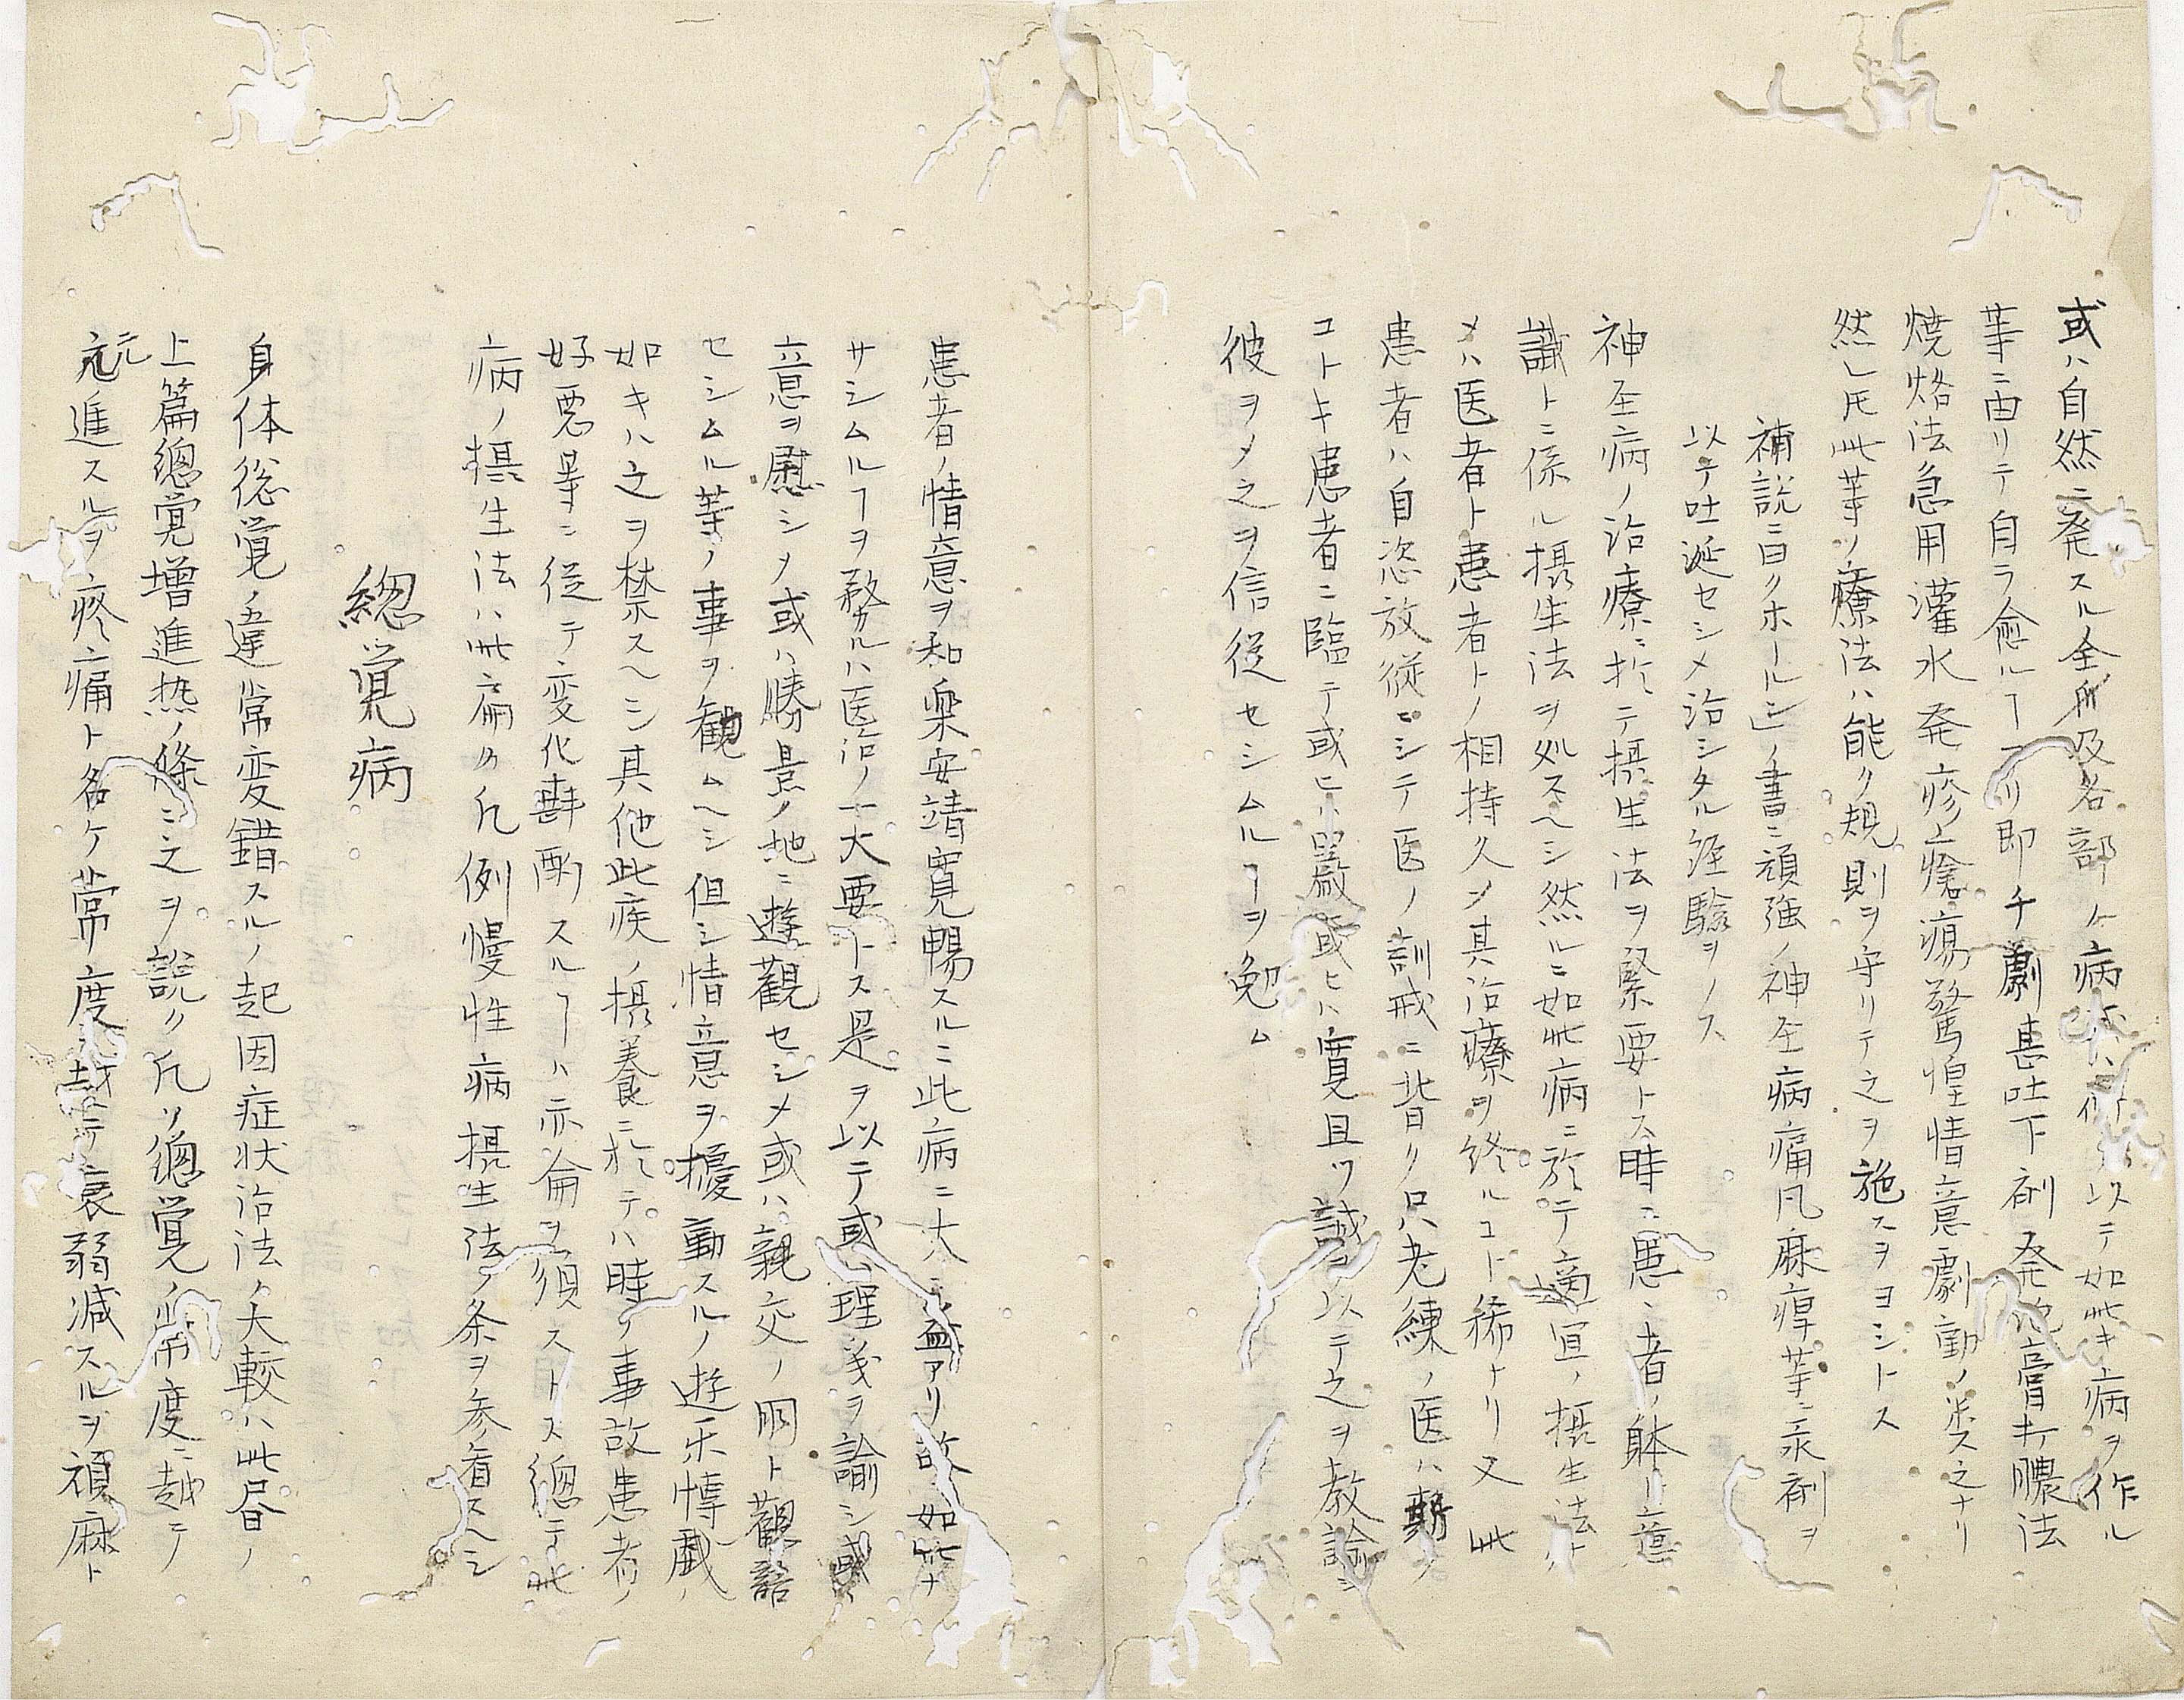 或ハ自然ニ発スル全所及各部ノ病ヲ以テ如此キ病ヲ作ル
䓁ニ由リテ自ラ愈ルヿアリ即チ劇甚吐下剤発泡膏打膿法
焼烙法急用灌水発疹上瘡瘍驚惶情意劇動ノ類之ナリ
然レ𪜈此䓁ノ療法ハ能ク規則ヲ守リテ之ヲ施スヲヨシトス
補説ニ曰クホールン」ノ書ニ頑強ノ神圣病痛凡麻痺䓁ニ汞剤ヲ
以テ吐涎セシメ治シタル経験ヲノス
神圣病ノ治療ニ於テ摂生法ヲ緊要トス時ニ患者ノ躰ト意
識トニ係ル摂生法ヲ処スヘシ然ルニ如此病ニ於テ適宜ノ摂生法ト
メハ医者ト患者トノ相持久メ其治療ヲ終ルコト稀ナリ又此
患者ハ自恣放従ニシテ医ノ訓戒ニ背ク只老練ノ医ハ斯ノ
コトキ患者ニ臨テ或ヒハ厳或ヒハ寛且ツ誠ヲ以テ之ヲ教諭シ
彼ヲメ之ヲ信従セシムルヿヲ勉ム
患者ノ情意ヲ和楽安靖寛暢スルニ此病ニ大ニ益アリ故ニ如此ナ
サシムルヿヲ務ルハ医治ノ一大要トス是ヲ以テ或ハ理義ヲ諭シ或ハ
意ヲ慰シメ或ハ勝景ノ地ニ遊観セシメ或ハ親交ノ朋ト観語
セシムル䓁ノ事ヲ観ムヘシ但シ情意ヲ擾動スルノ遊乐博戯ノ
如キハ之ヲ禁スヘシ其他此疾ノ摂養ニ於テハ時ノ事故患者ノ
好悪等ニ従テ変化斟酌スルヿハ亦侖ヲ須ストス總テ此
病ノ摂生法ハ此扁ノ凡例慢性病摂生法ノ条ヲ参看スヘシ
總覚病
身体総覚ノ違常変錯スルノ起因症状治法ノ大較ハ此冒ノ
上篇總覚増進热ノ條ニ之ヲ説ク凡ソ總覚ノ常度ニ越テ
亢進スルヲ疼痛ト名ケ常度ニ越テ衰弱減スルヲ頑麻ト